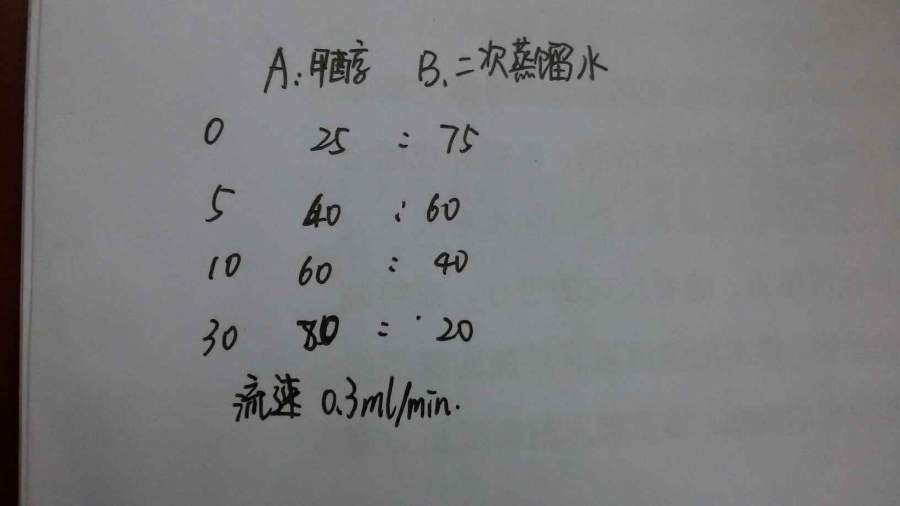 A:甲醇 B.二次蒸馏水
0 25 : 75
5 40 : 60
10 60 : 40
30 80 : 20
流速 0.3ml/min.